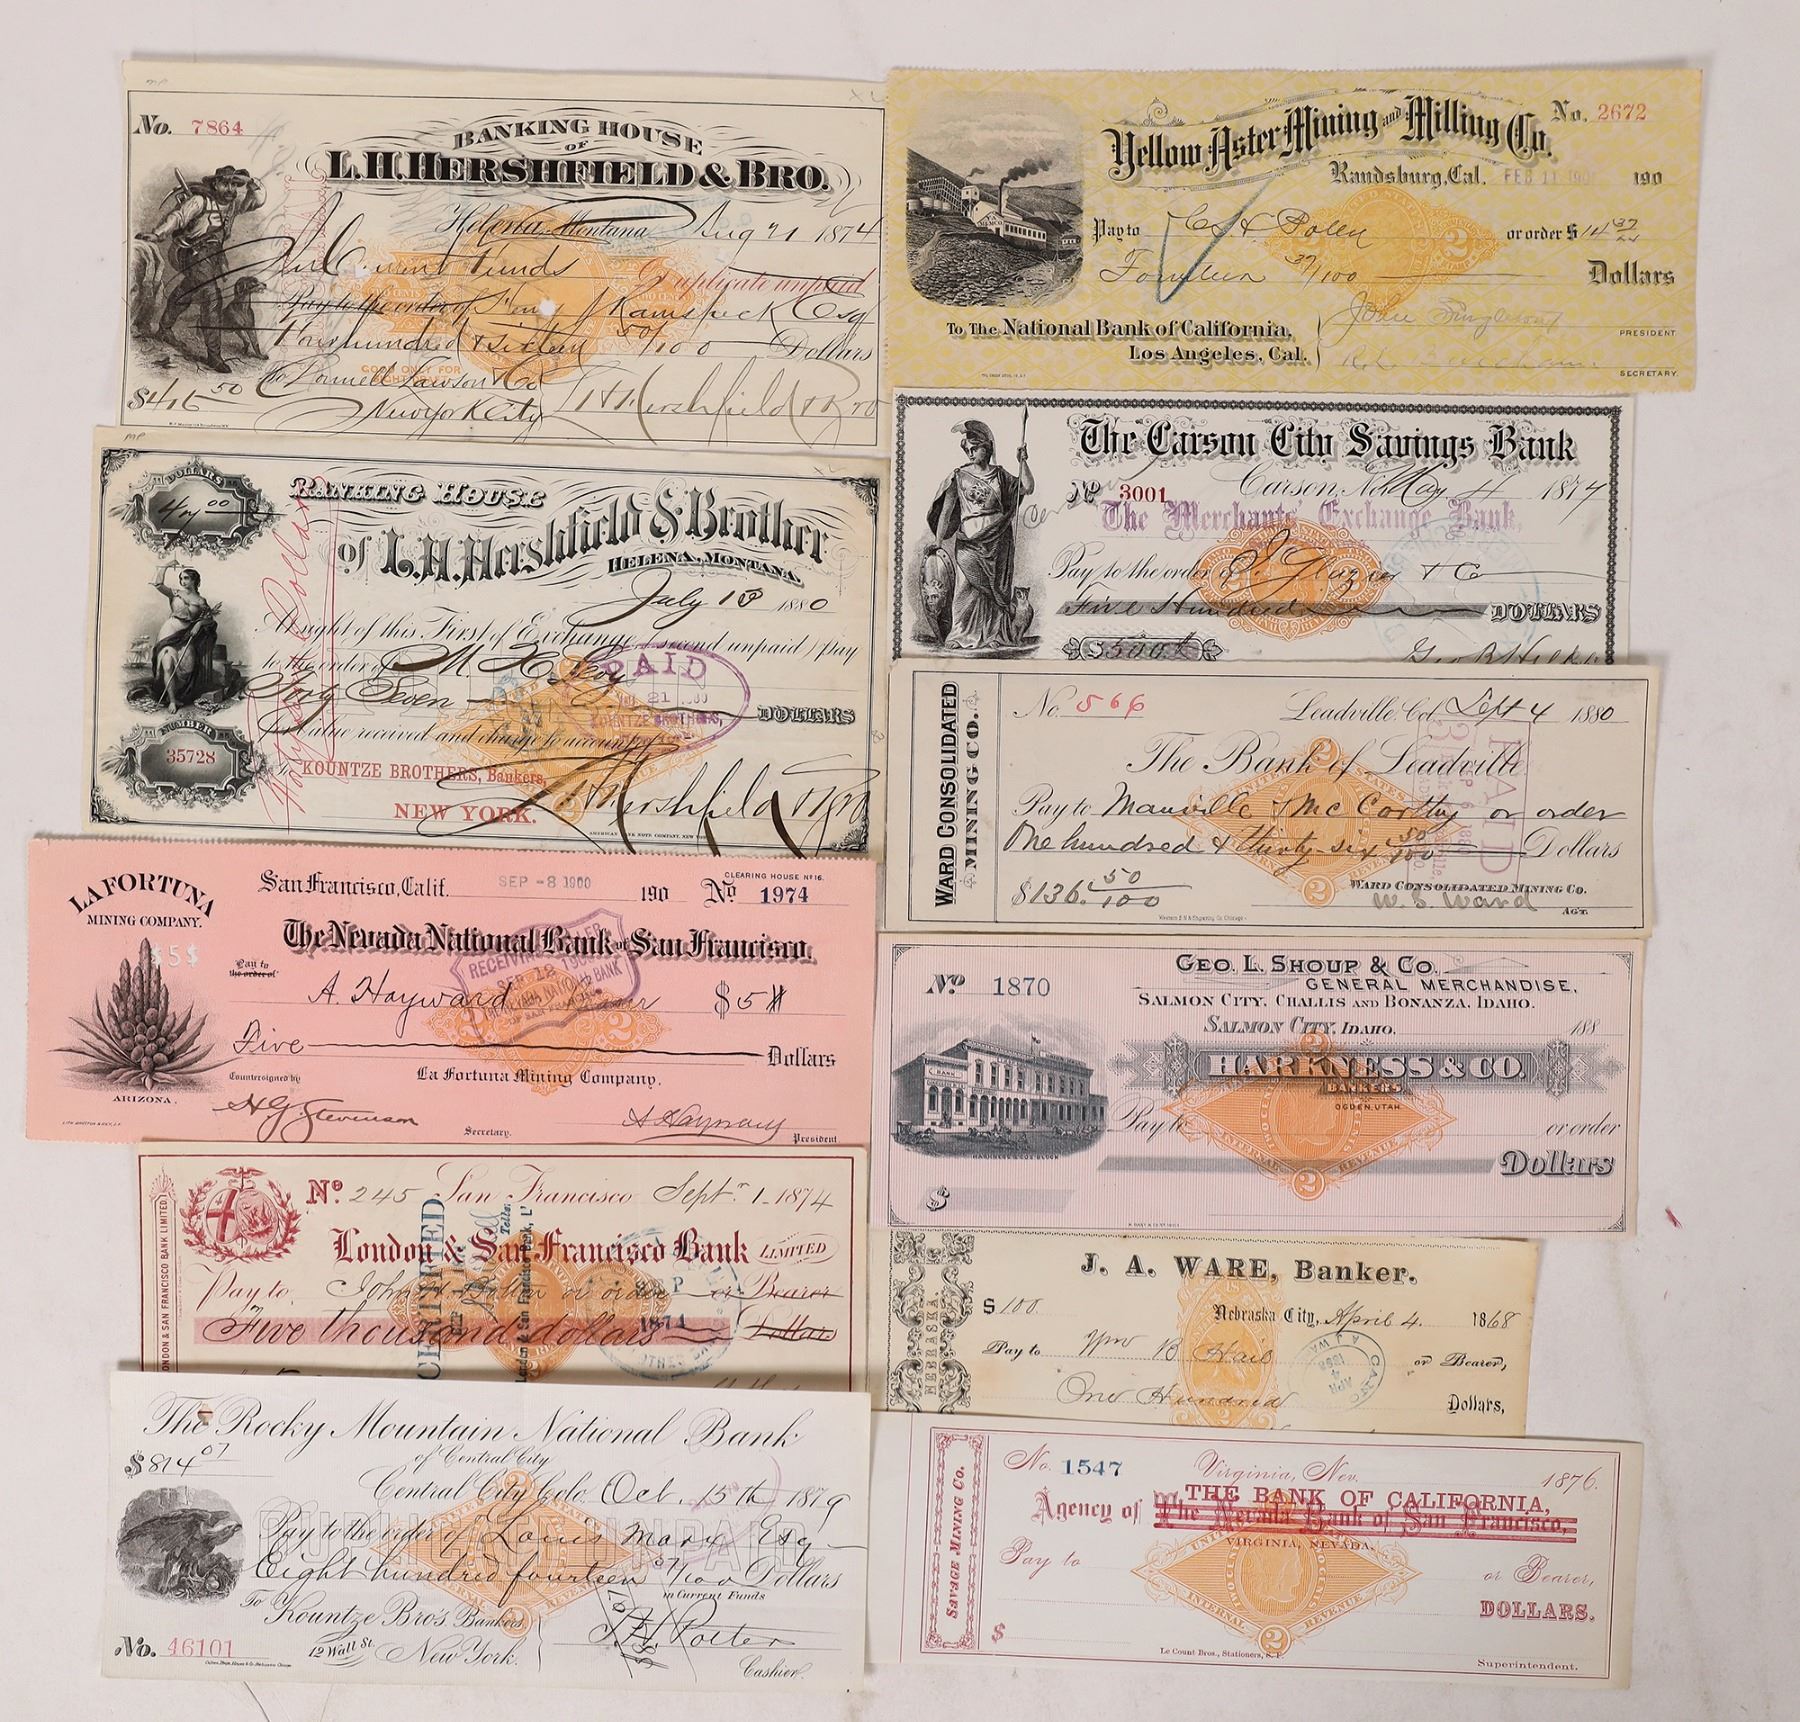 No. 7864
BANKING HOUSE
OF
L.H. HERSHFIELD & BRO.
Helena, Montana Aug 21 1874
In Current Funds
Duplicate unpaid
Pay to the order of Henry Esq
Four hundred & sixteen 50/100 Dollars
GOOD ONLY FOR
$416 50
To Donnell Lawson & Co
New York City
L H Hershfield & Bro
DOLLARS
47 00
BANKING HOUSE
OF L.H. Hershfield & Brother
HELENA, MONTANA,
July 10 1880
At sight of this First of Exchange (second unpaid) pay
to the order of M.
Forty Seven DOLLARS
PAID
21
KOUNTZE BROTHERS,
Value received and charge to account of
NUMBER
35728
To KOUNTZE BROTHERS, Bankers,
NEW YORK.
L H Hershfield & Bro
AMERICAN BANK NOTE COMPANY, NEW YORK
LA FORTUNA
MINING COMPANY.
ARIZONA.
$5$
San Francisco, Calif. SEP -8 1900 190
CLEARING HOUSE Nº 16.
Nº 1974
The Nevada National Bank of San Francisco.
Pay to
the order of
A. Hayward $5
Five Dollars
Countersigned by
La Fortuna Mining Company.
H.G. Stevenson
Secretary.
A Hayward
President
LONDON & SAN FRANCISCO BANK LIMITED
Nº 245 San Francisco Sept 1 - 1874
London & San Francisco Bank LIMITED
Pay to John or order or Bearer
Five thousand dollars Dollars
CERTIFIED
Teller.
London & San Francisco Bank, L'
1874
The Rocky Mountain National Bank
of Central City
$814 07
Central City, Colo. Oct. 15th 1879
DUPLICATE UNPAID
Pay to the order of Louis Marx Esq
Eight hundred fourteen 07/100 Dollars
in Current Funds
To Kountze Bro's Bankers
12 Wall St. New York.
No. 46101
Cashier.
Yellow Aster Mining and Milling Co.
No. 2672
Randsburg, Cal. FEB 11 190
Pay to or order $14 37
Fourteen 37/100 Dollars
To The National Bank of California,
Los Angeles, Cal.
John Singleton
PRESIDENT
SECRETARY.
The Carson City Savings Bank
Nº 3001 Carson, N. May 1874
The Merchants' Exchange Bank,
Pay to the order of & Co
Five Hundred DOLLARS
$500
WARD CONSOLIDATED
MINING CO.
No. 566 Leadville, Col. Sept 4 1880
The Bank of Leadville
PAID
Pay to Manville & McCarthy or order
One hundred & thirty-six 50/100 Dollars
$136. 50/100
WARD CONSOLIDATED MINING CO.
W. S. Ward AGT.
GEO. L. SHOUP & CO.
GENERAL MERCHANDISE,
SALMON CITY, CHALLIS AND BONANZA, IDAHO.
Nº 1870
SALMON CITY, IDAHO. 188
HARKNESS & CO.
BANKERS
OGDEN, UTAH.
BANK
HARKNESS & CO'S BLOCK
Pay to or order
Dollars
$
NEBRASKA.
J. A. WARE, Banker.
$100. Nebraska City, April 4. 1868
Pay to Wm B Hail or Bearer,
One Hundred Dollars,
SAVAGE MINING CO.
No. 1547 Virginia, Nev. 1876.
THE BANK OF CALIFORNIA,
Agency of The Nevada Bank of San Francisco,
VIRGINIA, NEVADA.
Pay to or Bearer,
DOLLARS.
UNITED STATES
INTERNAL REVENUE
2
$
Le Count Bros., Stationers, S. F.
Superintendent.